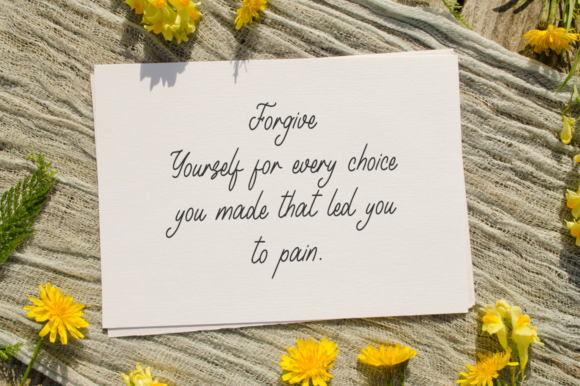 Forgive
Yourself for every choice
you made that led you
to pain.